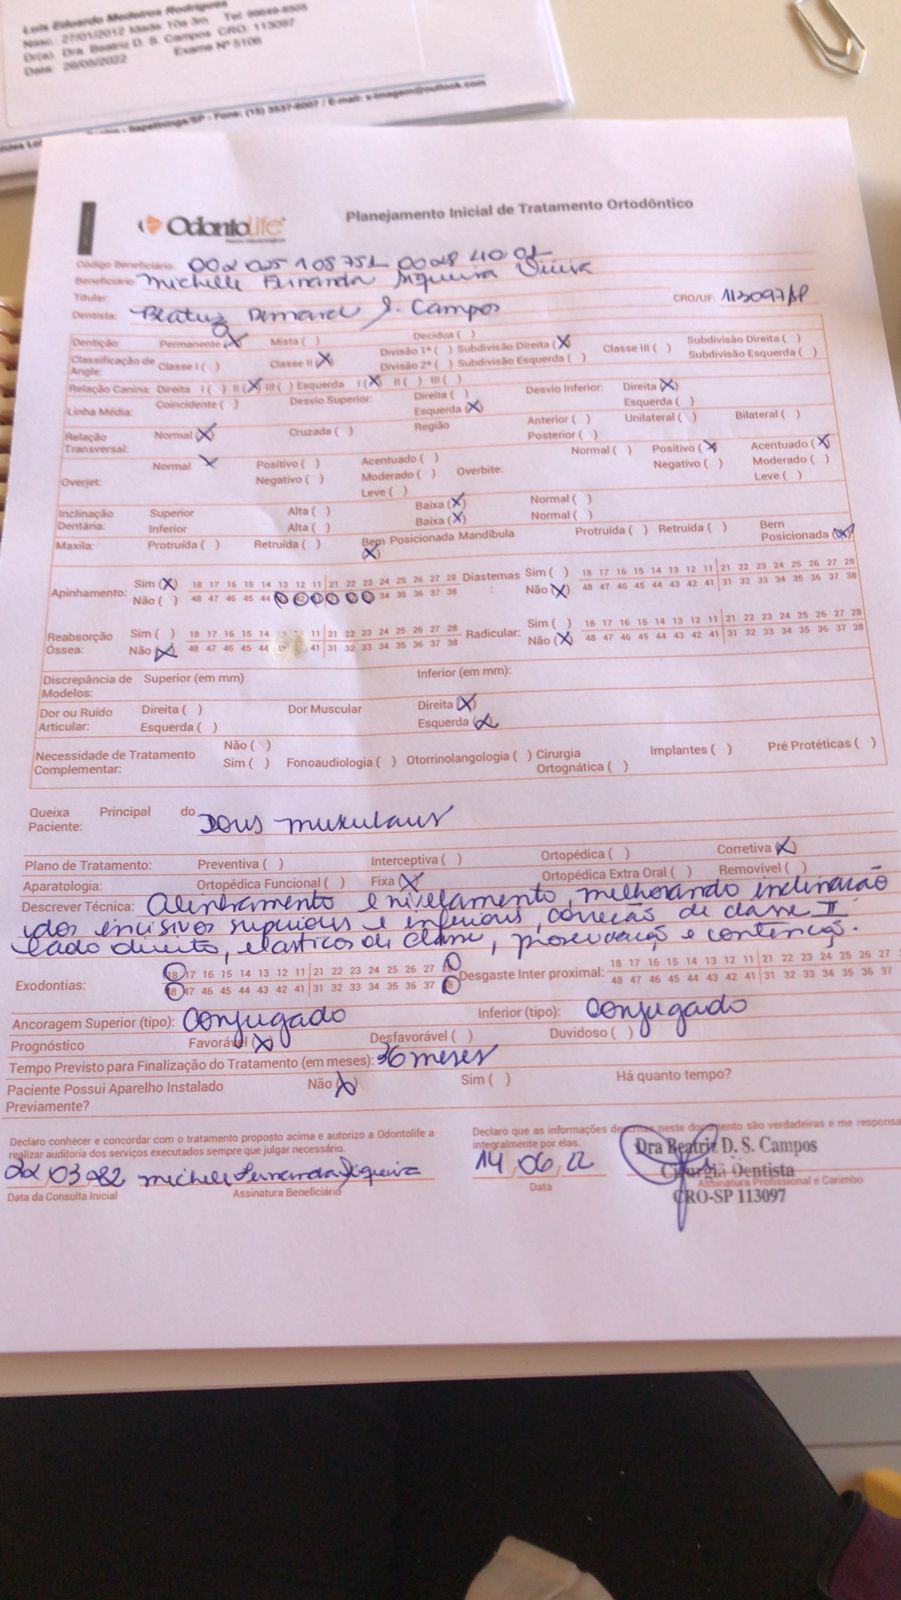 Luis Eduardo Medeiros Rodrigues
Nasc. 27/01/2012 Idade 10a 3m Tel:
Dr(a). Dra. Beatriz D. S. Campos CRO: 113097
Data: 26/05/2022 Exame Nº 5106
Itapetininga/SP - Fone: (15) 3537-6007 / E-mail: x-imagem@outlook.com
OdontoLife Planejamento Inicial de Tratamento Ortodôntico
Código Beneficiário:
Beneficiário: Michelle Fernanda Siqueira Vieira
Titular:
Dentista: Beatriz S. Campos CRO/UF: 113097/SP
Dentição: Permanente (X) Mista ( ) Decídua ( )
Classificação de Angle: Classe I ( ) Classe II (X) Divisão 1ª ( ) Subdivisão Direita (X) Classe III ( ) Subdivisão Direita ( )
Divisão 2ª ( ) Subdivisão Esquerda ( ) Subdivisão Esquerda ( )
Relação Canina: Direita I ( ) II (X) III ( ) Esquerda I (X) II ( ) III ( )
Linha Média: Coincidente ( ) Desvio Superior: Direita ( ) Desvio Inferior: Direita (X)
Esquerda (X) Esquerda ( )
Relação Transversal: Normal (X) Cruzada ( ) Região Anterior ( ) Unilateral ( ) Bilateral ( )
Posterior ( )
Overjet: Normal X Positivo ( ) Acentuado ( ) Overbite: Normal ( ) Positivo (X) Acentuado (X)
Negativo ( ) Moderado ( ) Negativo ( ) Moderado ( )
Leve ( ) Leve ( )
Inclinação Dentária: Superior Alta ( ) Baixa (X) Normal ( )
Inferior Alta ( ) Baixa (X) Normal ( )
Maxila: Protruída ( ) Retruída ( ) Bem Posicionada (X) Mandíbula Protruída ( ) Retruída ( ) Bem Posicionada (X)
Apinhamento: Sim (X) 18 17 16 15 14 13 12 11 21 22 23 24 25 26 27 28 Diastemas: Sim ( ) 18 17 16 15 14 13 12 11 21 22 23 24 25 26 27 28
Não ( ) 48 47 46 45 44 34 35 36 37 38 Não (X) 48 47 46 45 44 43 42 41 31 32 33 34 35 36 37 38
Reabsorção Óssea: Sim ( ) 18 17 16 15 14 11 21 22 23 24 25 26 27 28 Radicular: Sim ( ) 18 17 16 15 14 13 12 11 21 22 23 24 25 26 27 28
Não (X) 48 47 46 45 44 41 31 32 33 34 35 36 37 38 Não (X) 48 47 46 45 44 43 42 41 31 32 33 34 35 36 37 38
Discrepância de Modelos: Superior (em mm) Inferior (em mm):
Dor ou Ruído Articular: Direita ( ) Dor Muscular Direita (X)
Esquerda ( ) Esquerda (X)
Necessidade de Tratamento Complementar: Não ( )
Sim ( ) Fonoaudiologia ( ) Otorrinolangologia ( ) Cirurgia Ortognática ( ) Implantes ( ) Pré Protéticas ( )
Queixa Principal do Paciente: Dores musculares
Plano de Tratamento: Preventiva ( ) Interceptiva ( ) Ortopédica ( ) Corretiva (X)
Aparatologia: Ortopédica Funcional ( ) Fixa (X) Ortopédica Extra Oral ( ) Removível ( )
Descrever Técnica: Alinhamento e nivelamento, melhorando inclinação
dos incisivos superiores e inferiores, correção de classe II
lado direito, elasticos de classe, proservação e contenção.
Exodontias: 18 17 16 15 14 13 12 11 21 22 23 24 25 26 27 Desgaste Inter proximal: 18 17 16 15 14 13 12 11 21 22 23 24 25 26 27
48 47 46 45 44 43 42 41 31 32 33 34 35 36 37 38 48 47 46 45 44 43 42 41 31 32 33 34 35 36 37
Ancoragem Superior (tipo): Conjugado Inferior (tipo): Conjugado
Prognóstico Favorável (X) Desfavorável ( ) Duvidoso ( )
Tempo Previsto para Finalização do Tratamento (em meses): 36 meses
Paciente Possui Aparelho Instalado Previamente? Não (X) Sim ( ) Há quanto tempo?
Declaro conhecer e concordar com o tratamento proposto acima e autorizo a Odontolife a
realizar auditoria dos serviços executados sempre que julgar necessário.
Declaro que as informações descritas neste documento são verdadeiras e me responsa
integralmente por elas.
Michele Fernanda Siqueira
Data da Consulta Inicial Assinatura Beneficiário
14/06/22
Data
Dra Beatriz D. S. Campos
Cirurgiã Dentista
Assinatura Profissional e Carimbo
CRO-SP 113097